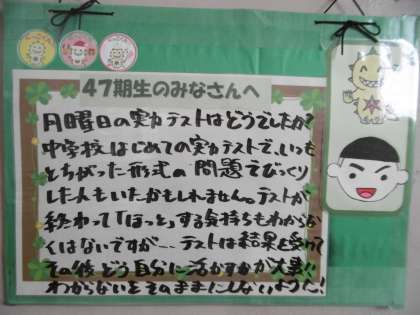 47期生のみなさんへ
月曜日の実力テストはどうでしたか?
中学校はじめての実力テストで、いつも
とちがった形式の問題でびっくり
した人もいたかもしれません。テストが
終わって「ほっと」する気持ちもわからな
くはないですが… テストは結果を受けて
その後どう自分に活かすかが大事!!
わからないをそのままにしないように!